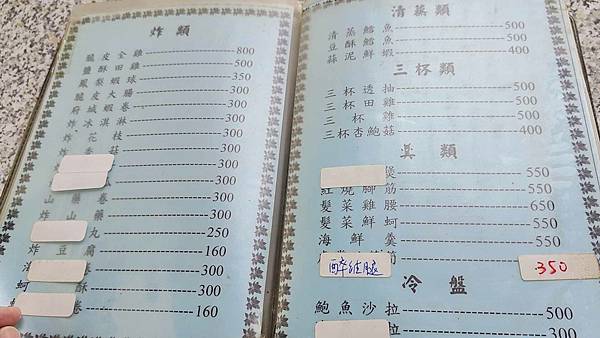 炸類
脆皮全雞 800
鹽酥田雞 500
鳳梨蝦球 350
脆皮大腸 300
府城蝦卷 300
炸冰淇淋 300
炸花枝 300
炸 菇 300
300
瓜 300
山 藥 300
丸 250
炸豆腐 160
卷 300
蚵 酥 300
卷 160
清蒸類
清蒸鱈魚 500
豆酥鱈魚 500
蒜泥鮮蝦 400
三杯類
三杯透抽 500
三杯田雞 500
三杯雞 500
三杯杏鮑菇 400
羹類
煲 550
紅燒腳筋 550
髮菜雞腰 650
髮菜鮮蚵 550
海鮮羹 550
筋
醉雞腿 350
冷盤
鮑魚沙拉 500
拉 400